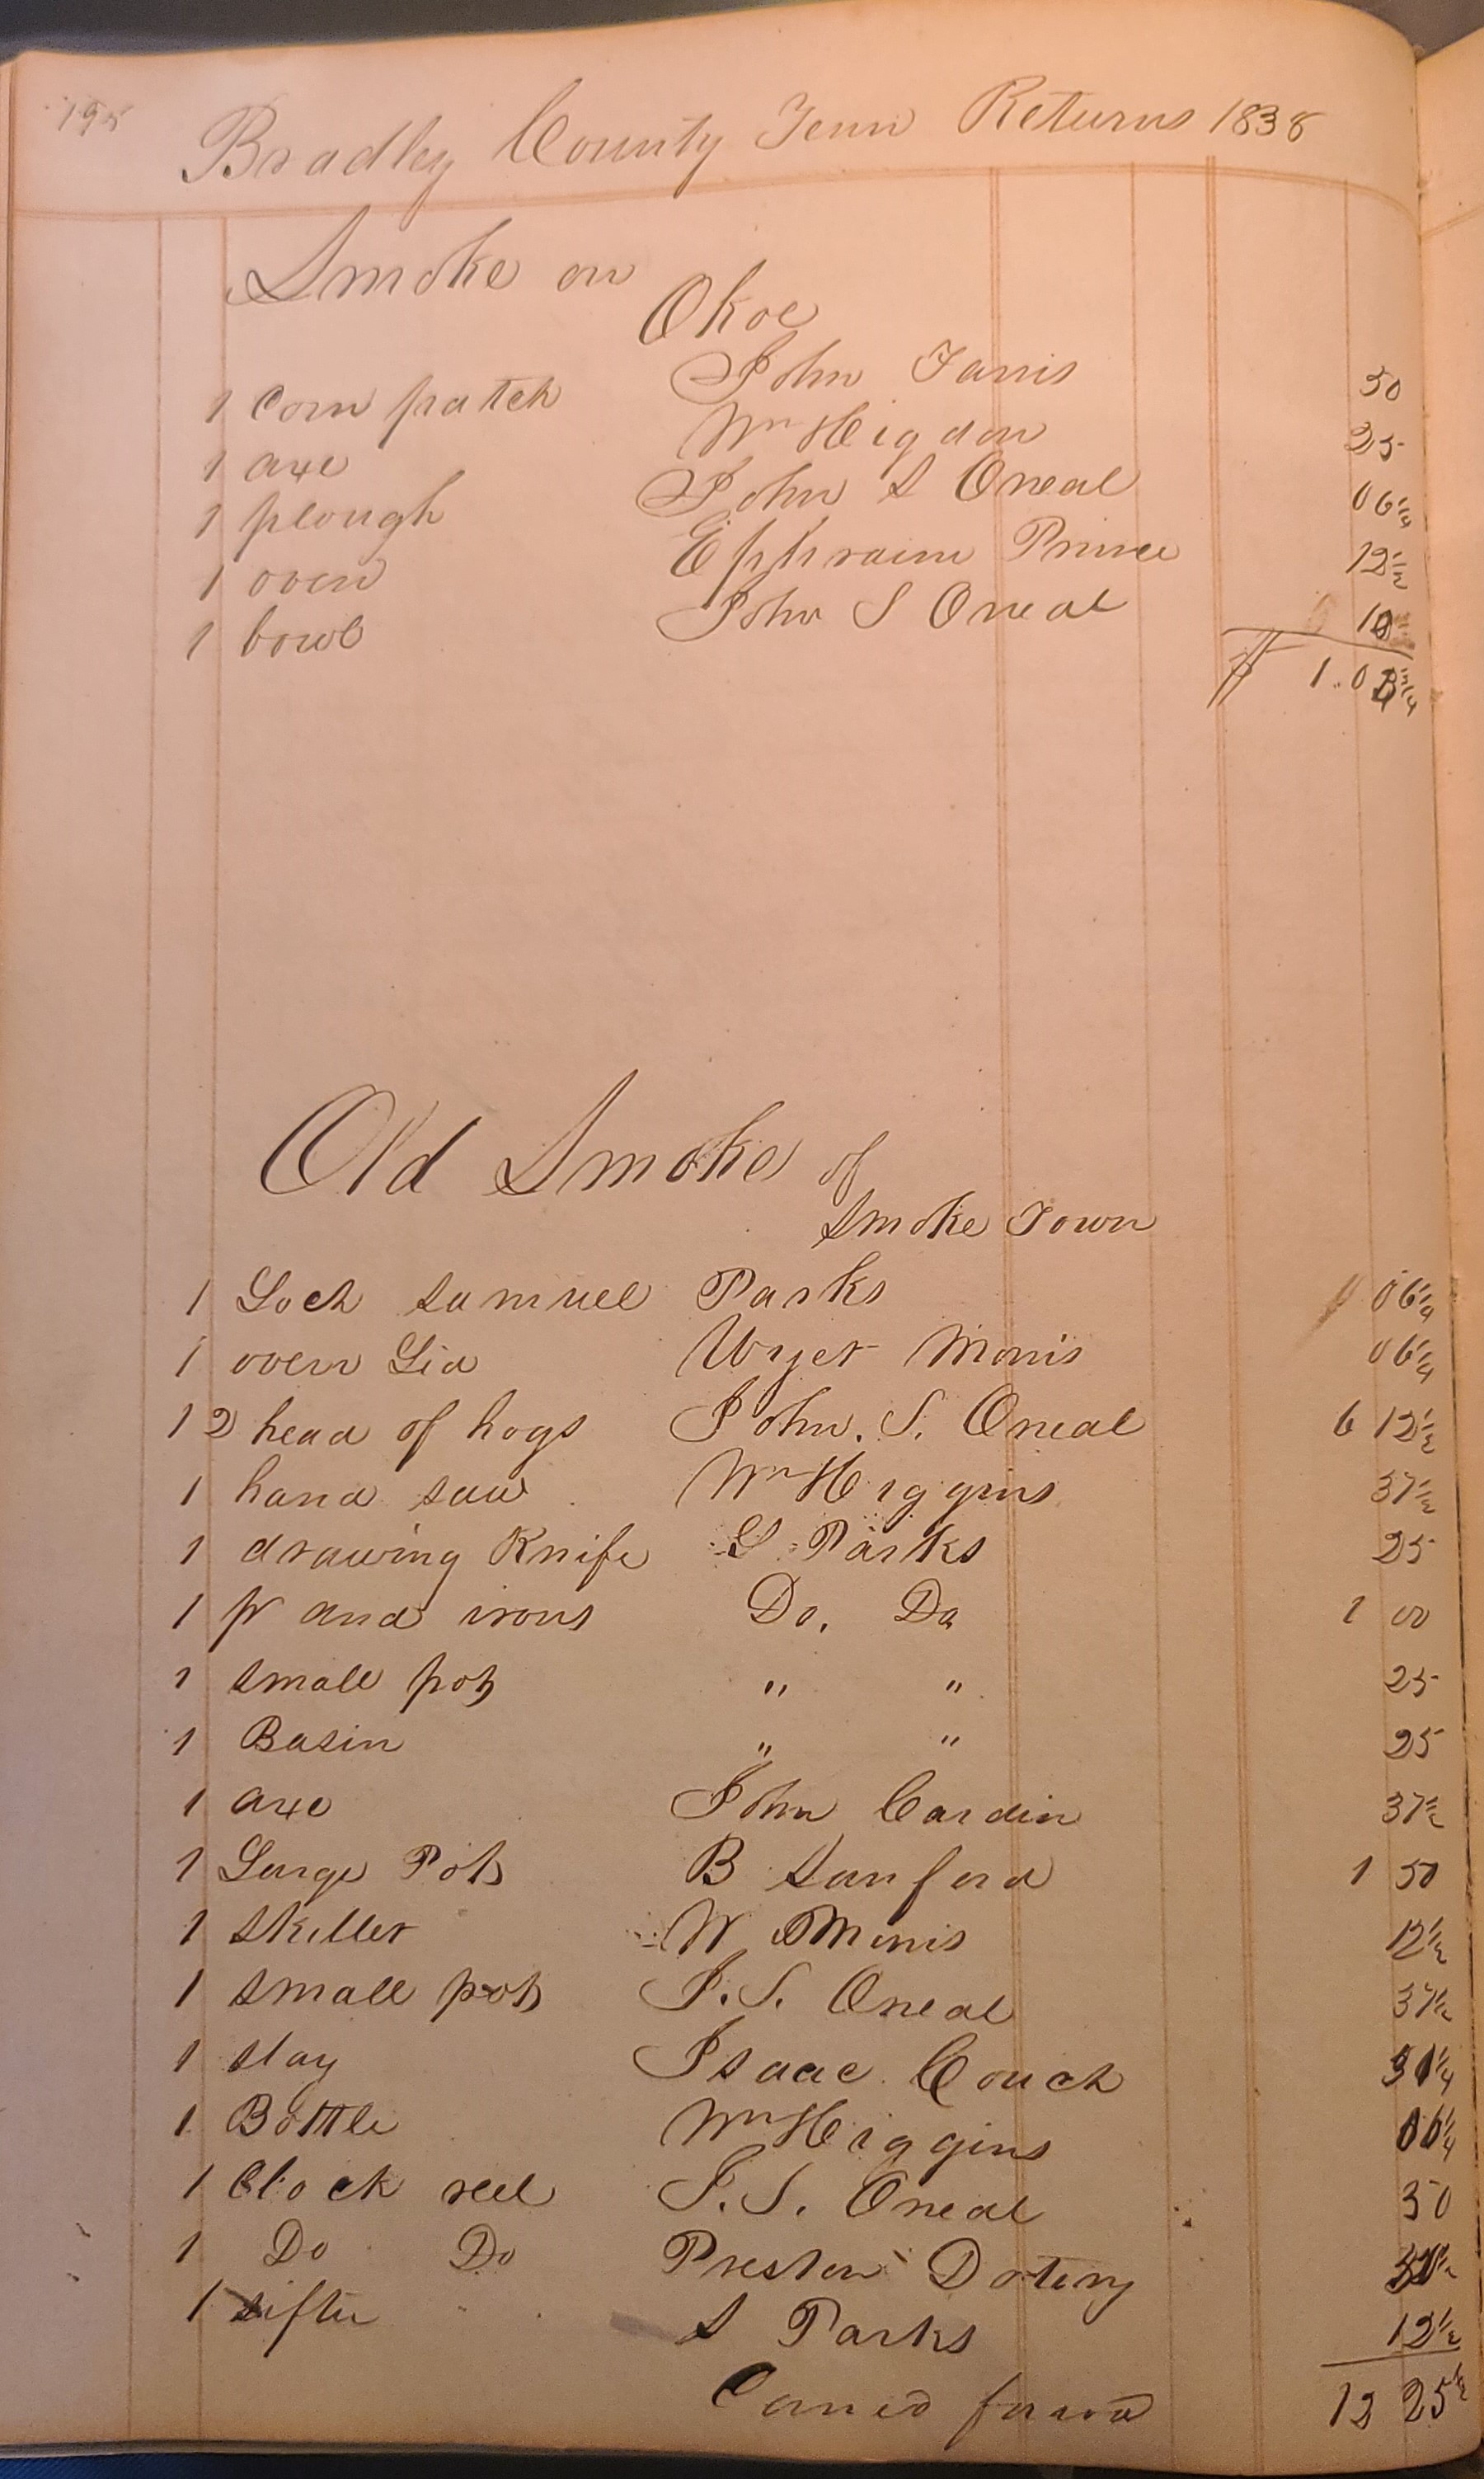 Bradley County Tenn Returns 1838
Smoke on
Okoe
1 Corn patch John Farris 50
1 axe Wm Higdon 25
1 plough John S Oneal 06 1/4
1 oven Ephraim Prince 12 1/2
1 bowl John S Oneal 10
$ 1.03 3/4
Old Smoke of
Smoke Town
1 Loch Samuel Parks 06 1/4
1 oven Lid Wyer Morris 06 1/4
12 head of hogs John. S. Oneal 6 12 1/2
1 hand saw Wm Higgins 37 1/2
1 drawing Knife S Parks 25
1 pr and irons Do. Do 1 00
1 small pot " " 25
1 Basin " " 25
1 axe John Cardin 37 1/2
1 Large Pot B Sanford 1 50
1 skillet W Morris 12 1/2
1 small pot J. S. Oneal 37 1/2
1 slay Isaac Couch 31 1/4
1 Bottle Wm Higgins 06 1/4
1 Clock reel J. S. Oneal 50
1 Do Do Preston Doteny
1 sifter S Parks 12 1/2
Carried forwd 12 25 1/2